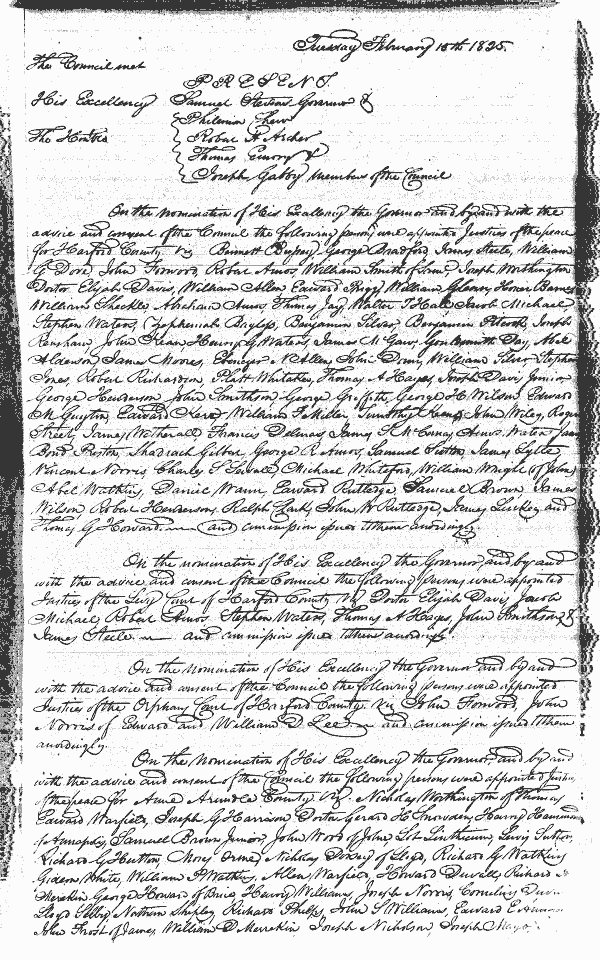 Tuesday February 15th 1825.
The Council met
PRESENT
His Excellency Samuel Stevens Governor &
Philemon Chew
The Honble Robert A Archer
Thomas Emory &
Joseph Gabby members of the Council
On the nomination of His Excellency the Governor and by and with the
advice and consent of the Council the following persons were appointed Justices of the peace
for Harford County viz Bennett Bussey George Bradford James Steele, William
G Dove, John Forwood, Robert Amos, William Smith of Saml, Joseph Worthington
Doctor Elijah Davis, William Allen Edward William Glenny Barnes
William Abraham Amos, Thomas Jay Walter T Hall Jacob Michael
Stephen Waters, Zephemiah Bayless, Benjamin Silver, Benjamin Joseph
Renshaw, John Kean Henry G Waters, James McGaw, Goldsmith Day, Abel
Alderson James Moores, Ebenezer N Allen John William Silver Stephen
Jones, Robert Richardson, Platt Whitaker, Thomas A Hayes, Davis Junior
George Henderson John Smithson George Griffith, George H Wilson Edward
M Guyton, Edward William F Miller, Timothy John Wiley, Roger
Street, James Wetherall Francis Delmas James S McComas Amos Waters James
Bond Preston, Shadrach Gilbert George R Amos, Samuel Sutton James Lytle
Vincent Norris Charles S Michael Whiteford, William Wright of John
Abel Watkins, Daniel Wann, Edward Rutledge Samuel Brown James
Wilson Robert Henderson Ralph Clark John W Rutledge James and
Thomas G Howard and commission issued to them accordingly.
On the nomination of His Excellency the Governor, and by and
with the advice and consent of the Council the following persons were appointed
Justices of the Levy Court of Harford County viz Doctor Elijah Davis Jacob
Michael Robert Amos Stephen Waters Thomas A Hayes John Smithson &
James Steele and commission issued to them accordingly.
On the nomination of His Excellency the Governor and by and
with the advice and consent of the Council the following persons were appointed
Justices of the Orphans Court of Harford County viz John Forwood, John
Norris of Edward and William D Lee and commission issued to them
accordingly.
On the nomination of His Excellency the Governor, and by and
with the advice and consent of the Council the following persons were appointed Justices
of the peace for Anne Arundle County viz. Nicholas Worthington of Thomas
Edward Warfield, Joseph G Harrison Doctor Gerard H Snowden, Harry Hammond
of Annapolis, Samuel Brown Junior, John Wood of John Linthicum, Lewis Sutton
Richard G Hutton, Mosey Orme Nicholas Dorsey of Lloyd, Richard G Watkins
Gideon White, William P Watkins, Allen Warfield, Howard Duvall, Richard
Merekin George Howard of Brice Henry Williams, Joseph Norris, Cornelius
Lloyd Selby Nathan Shipley Richard Phelps, John S Williams, Edward E
John Frost of James, William D Merrekin Joseph Nicholson, Joseph